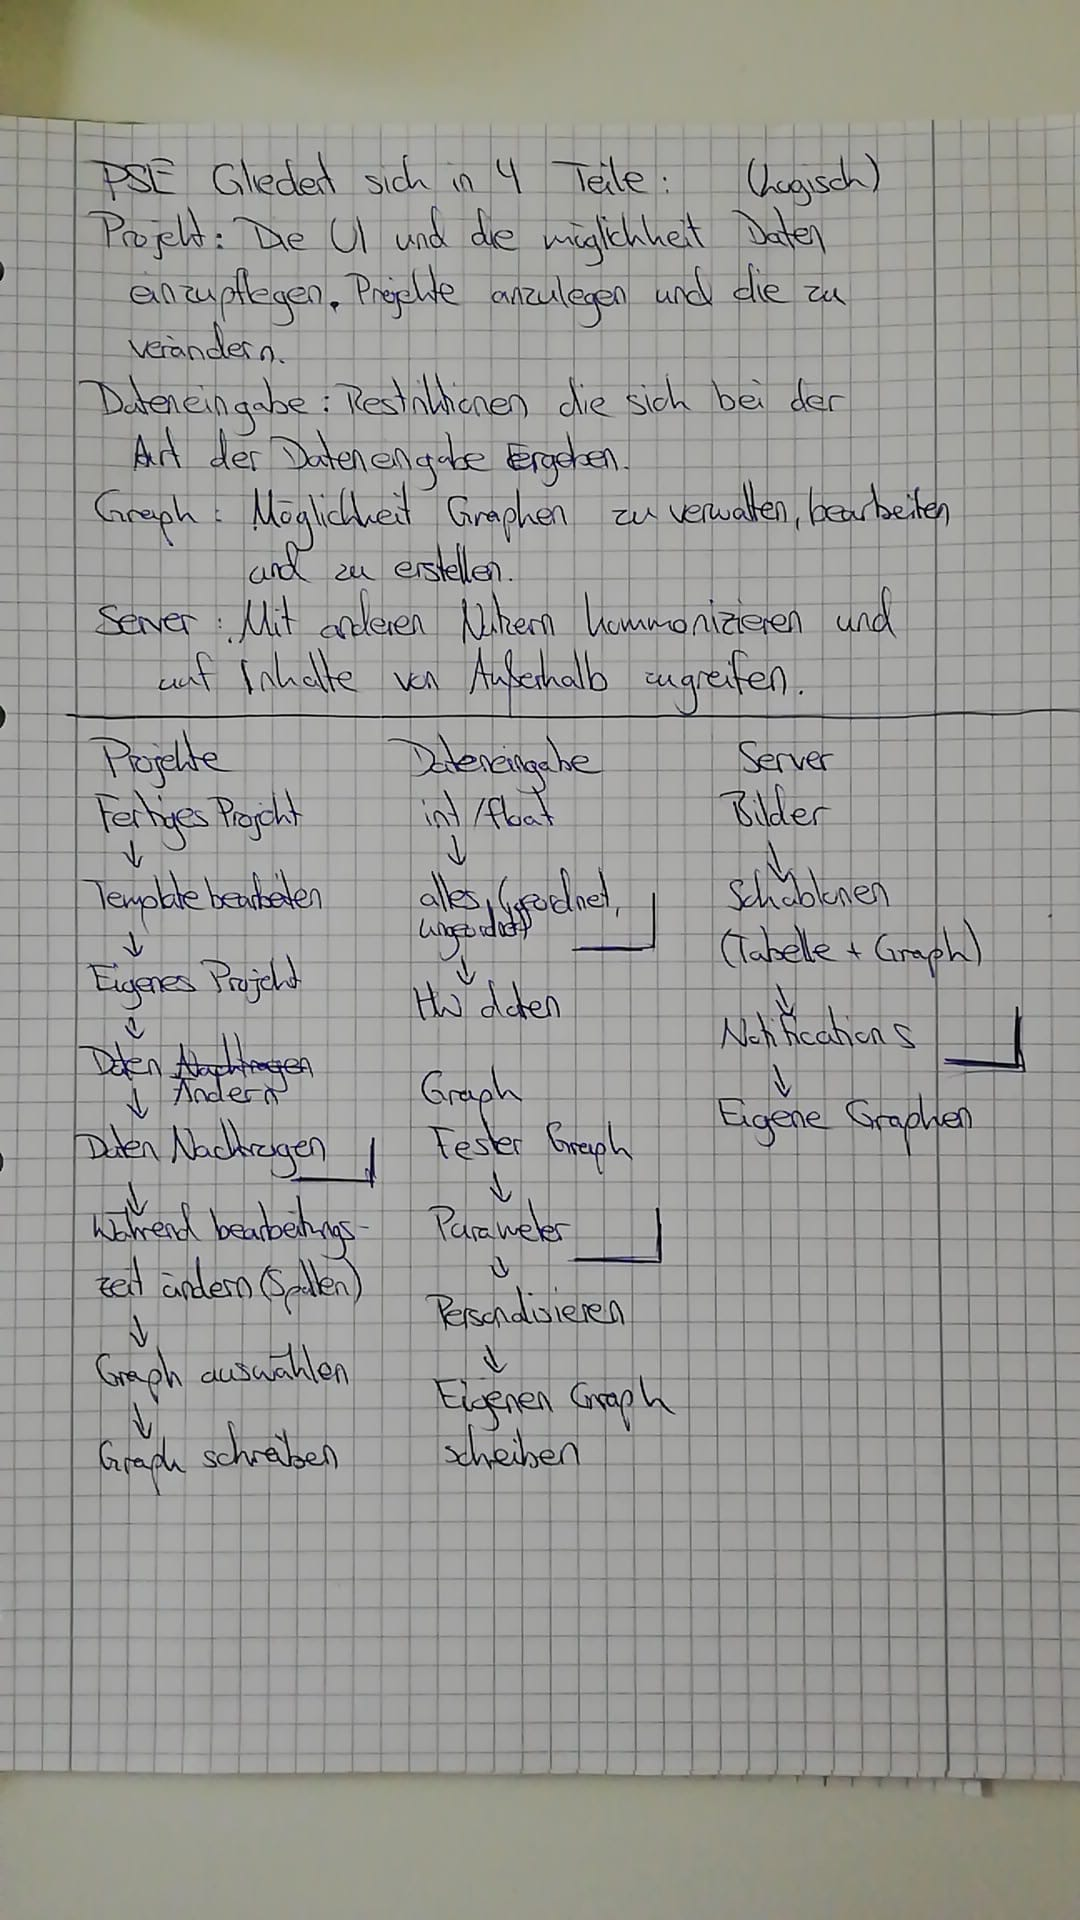 PSE Gliedert sich in 4 Teile: (Logisch)
Projekt: Die UI und die möglichkeit Daten
einzupflegen, Projekte anzulegen und die zu
verändern.
Dateneingabe: Restriktionen die sich bei der
Art der Dateneingabe Ergeben.
Graph: Möglichkeit Graphen zu verwalten, bearbeiten
und zu erstellen.
Server: Mit anderen Nutzern kommonizieren und
auf Inhalte von Außerhalb zugreifen.
Projekte
Fertiges Projekt
↓
Template bearbeiten
↓
Eigenes Projekt
↓
Daten Nachtragen
Ändern
↓
Daten Nachtragen
↓
Während bearbeitungs-
zeit ändern (Spalten)
↓
Graph auswählen
↓
Graph schreiben
Dateneingabe
int/float
↓
alles, Geordnet,
ungeordnet
↓
HW daten
Graph
Fester Graph
↓
Parameter
↓
Personalisieren
↓
Eigenen Graph
schreiben
Server
Bilder
↓
Schablonen
(Tabelle + Graph)
↓
Notifications
↓
Eigene Graphen